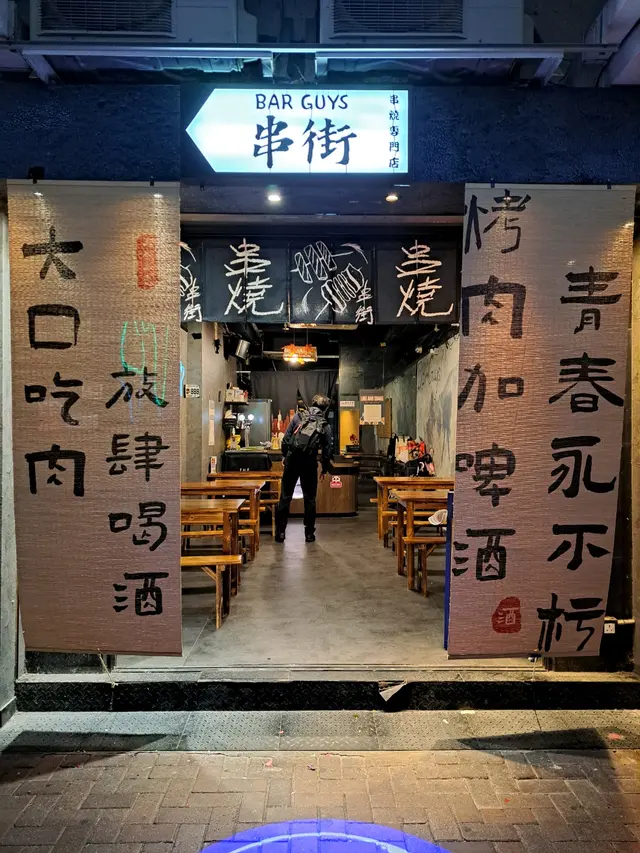 BAR GUYS
串街
串燒專門店
串燒
串街
串燒
大口吃肉
放肆喝酒
烤肉加啤酒
青春永不朽
酒